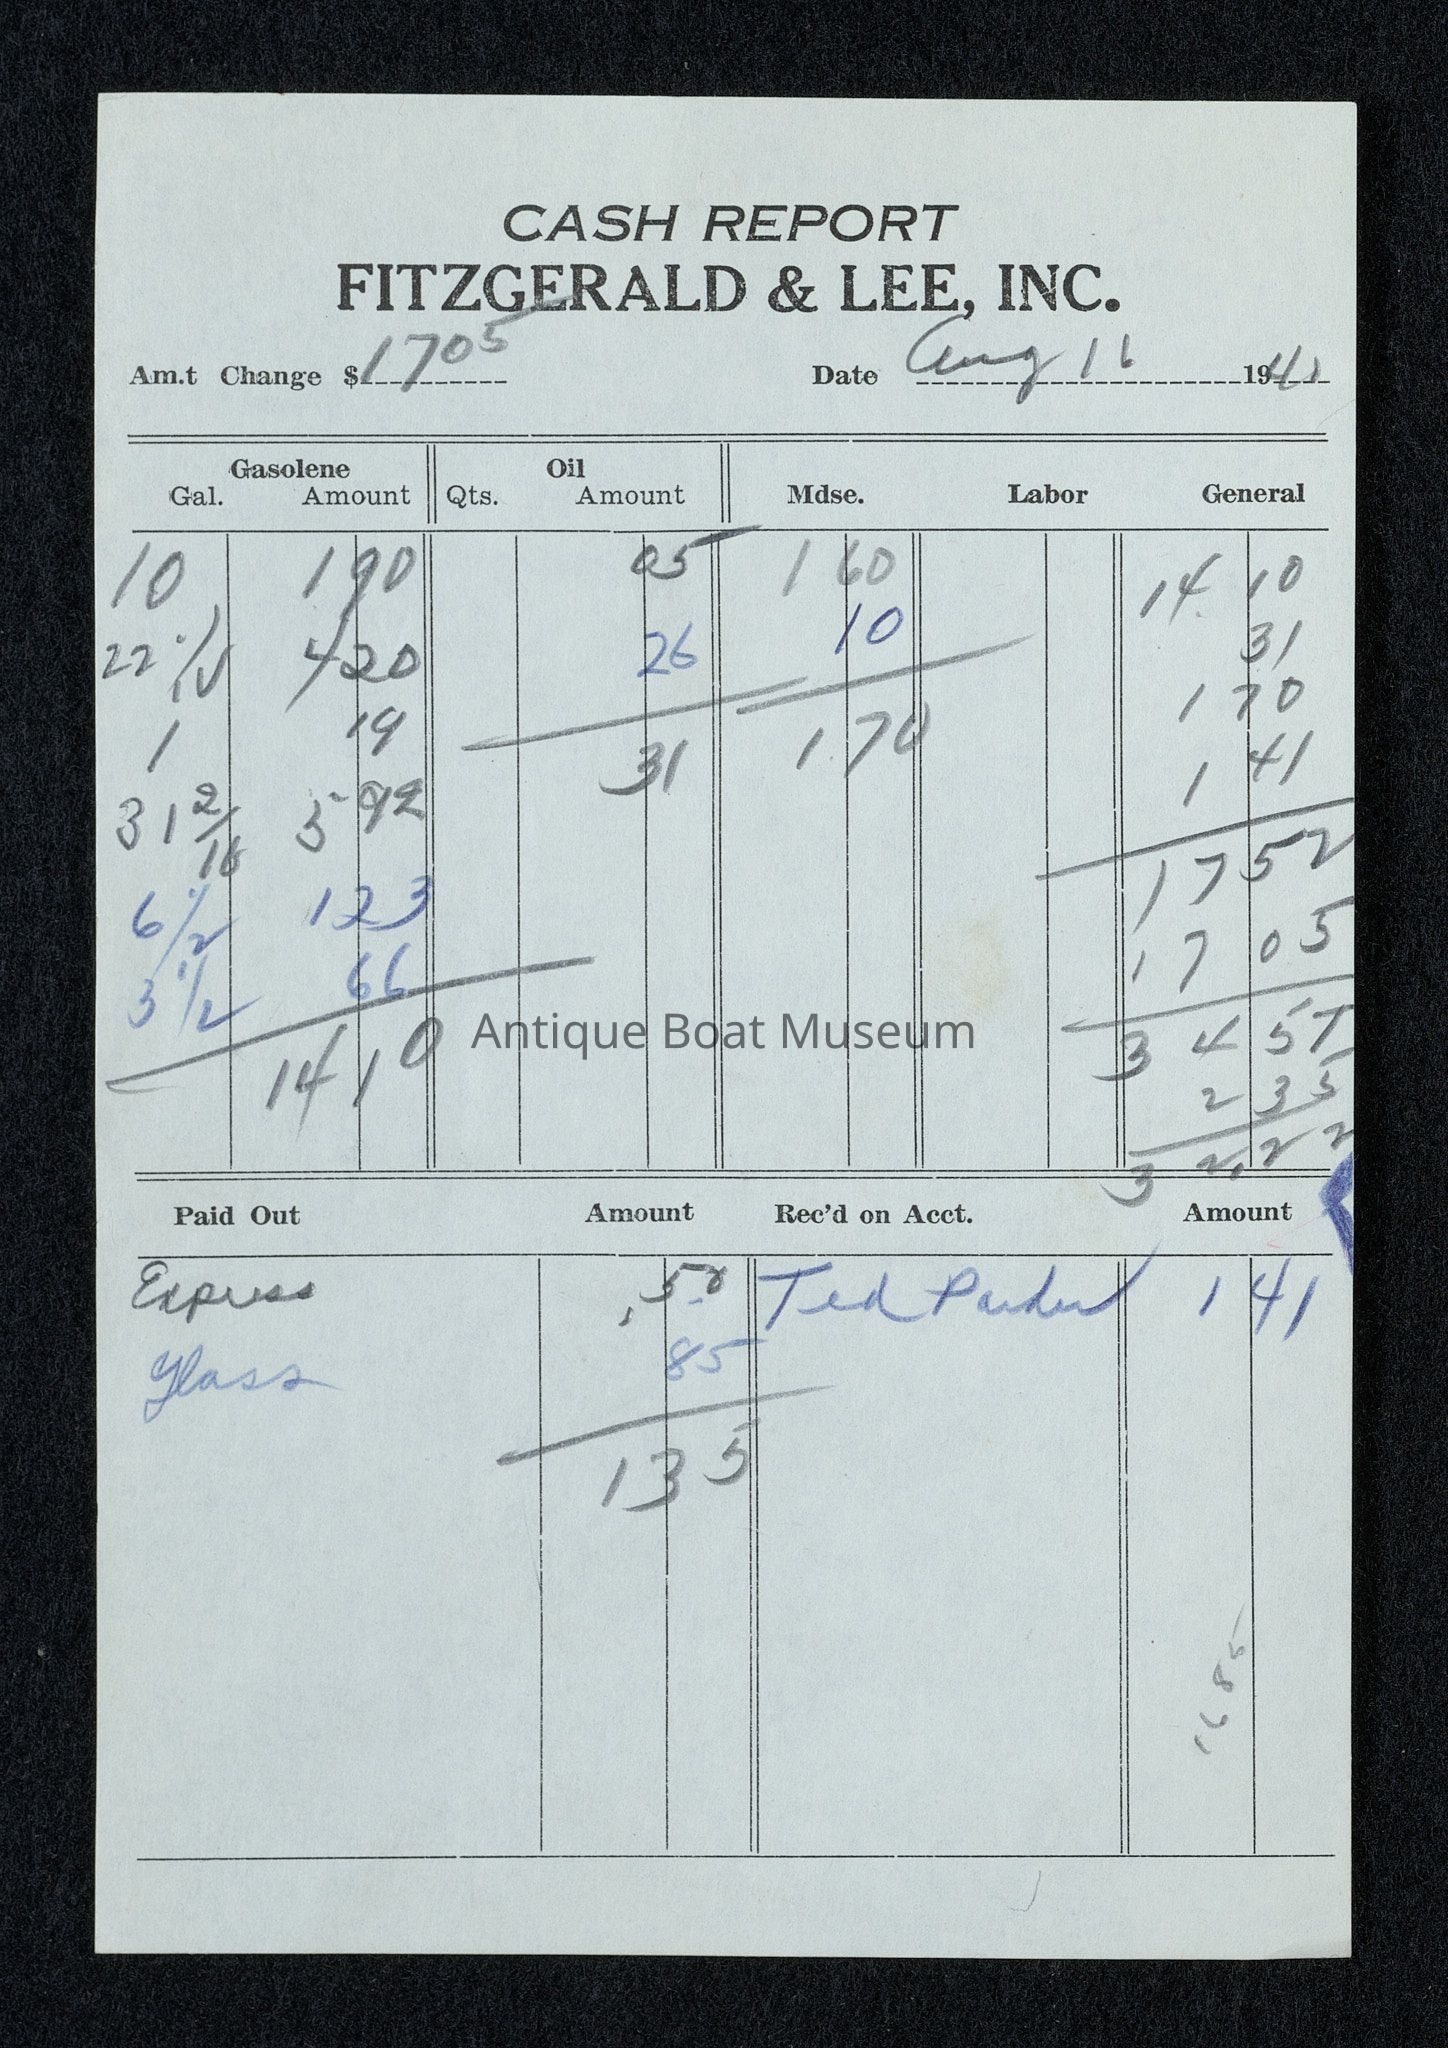 CASH REPORT
FITZGERALD & LEE, INC.
Am.t Change $ 1705 Date Aug 16 1941
Gasolene Oil
Gal. Amount Qts. Amount Mdse. Labor General
10 190 05 1 60 14 10
22 1/2 420 26 10 31
1 19 31 1.70 1 70
31 2/16 5 92 1 41
6 1/2 123 17 52
3 1/2 66 17 05
14 10 34 57
2 35
32,22
Antique Boat Museum
Paid Out Amount Rec'd on Acct. Amount
Express .50 Ted Parker 1 41
Glass 85
1 35
1685